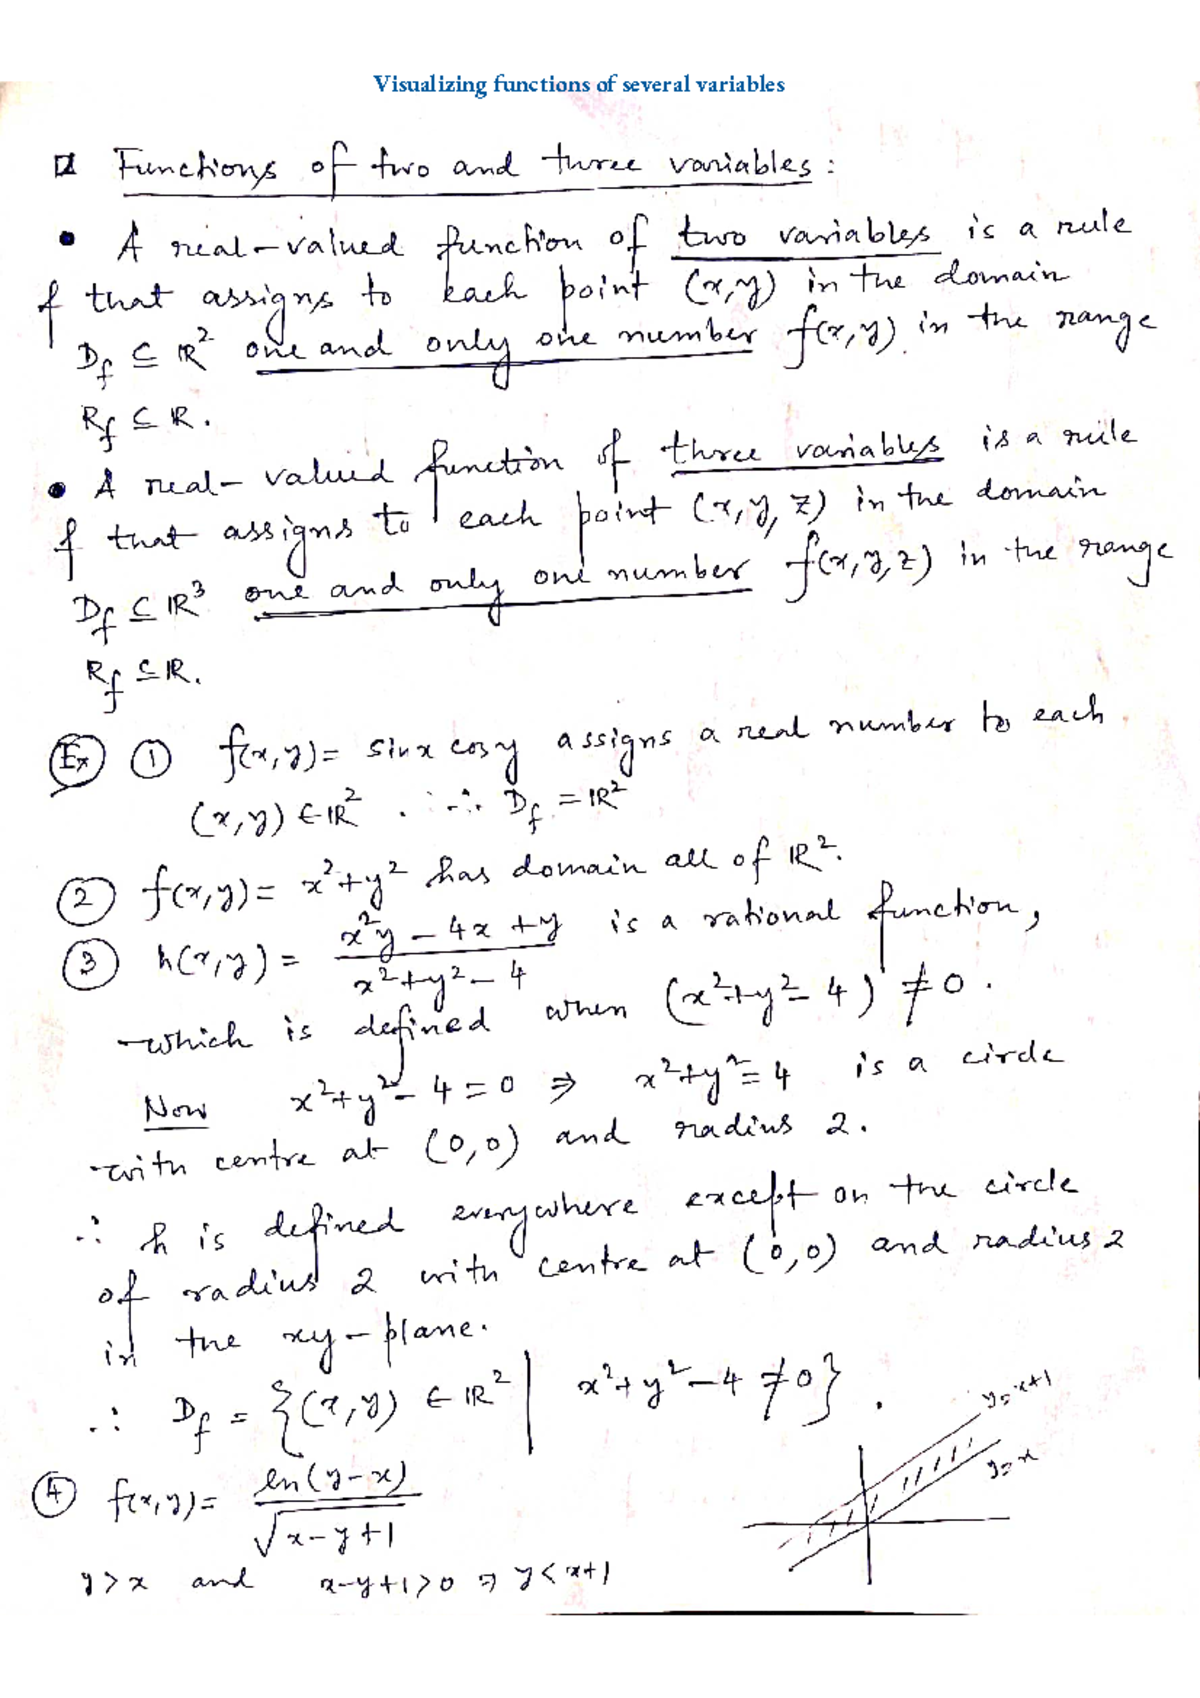 Visualizing functions of several variables
Functions of two and three variables:
• A real-valued function of two variables is a rule
f that assigns to each point (x,y) in the domain
D_f ⊆ ℝ² one and only one number f(x,y) in the range
R_f ⊆ ℝ.
• A real-valued function of three variables is a rule
f that assigns to each point (x,y,z) in the domain
D_f ⊆ ℝ³ one and only one number f(x,y,z) in the range
R_f ⊆ ℝ.
Ex ① f(x,y) = sinx cosy assigns a real number to each
(x,y) ∈ ℝ². ∴ D_f = ℝ²
② f(x,y) = x²+y² has domain all of ℝ².
③ h(x,y) = (x²y - 4x + y)/(x²+y²-4) is a rational function,
which is defined when (x²+y²-4) ≠ 0.
Now x²+y²-4=0 ⇒ x²+y²=4 is a circle
with centre at (0,0) and radius 2.
∴ h is defined everywhere except on the circle
of radius 2 with centre at (0,0) and radius 2
in the xy-plane.
∴ D_f = {(x,y) ∈ ℝ² | x²+y²-4 ≠ 0}.
y=x+1
y=x
④ f(x,y) = ln(y-x)/√(x-y+1)
y>x and x-y+1>0 ⇒ y<x+1